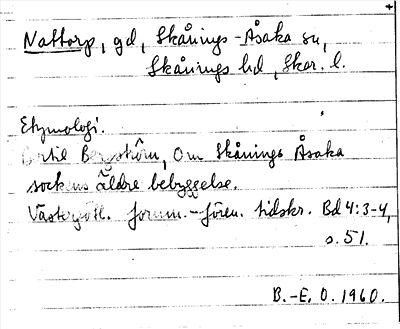 Nattorp, gd, Skånings-Åsaka sn,
Skånings hd, Skar. l.
Etymologi.
Bertil Bergström, Om Skånings Åsaka
sockens äldre bebyggelse.
Västergötl. fornm.-fören. tidskr. Bd 4:3-4,
s. 51.
B.-E. O. 1960.